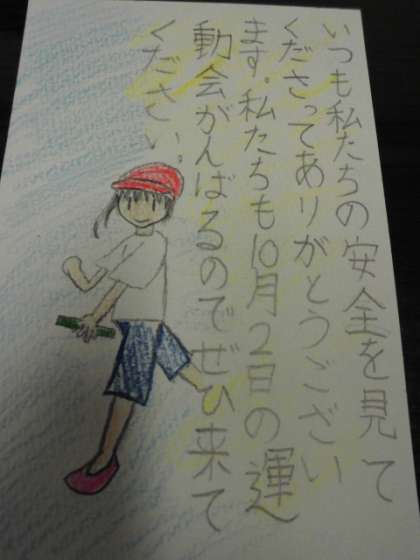 いつも私たちの安全を見て
くださってありがとうござい
ます。私たちも10月2日の運
動会がんばるのでぜひ来て
ください。